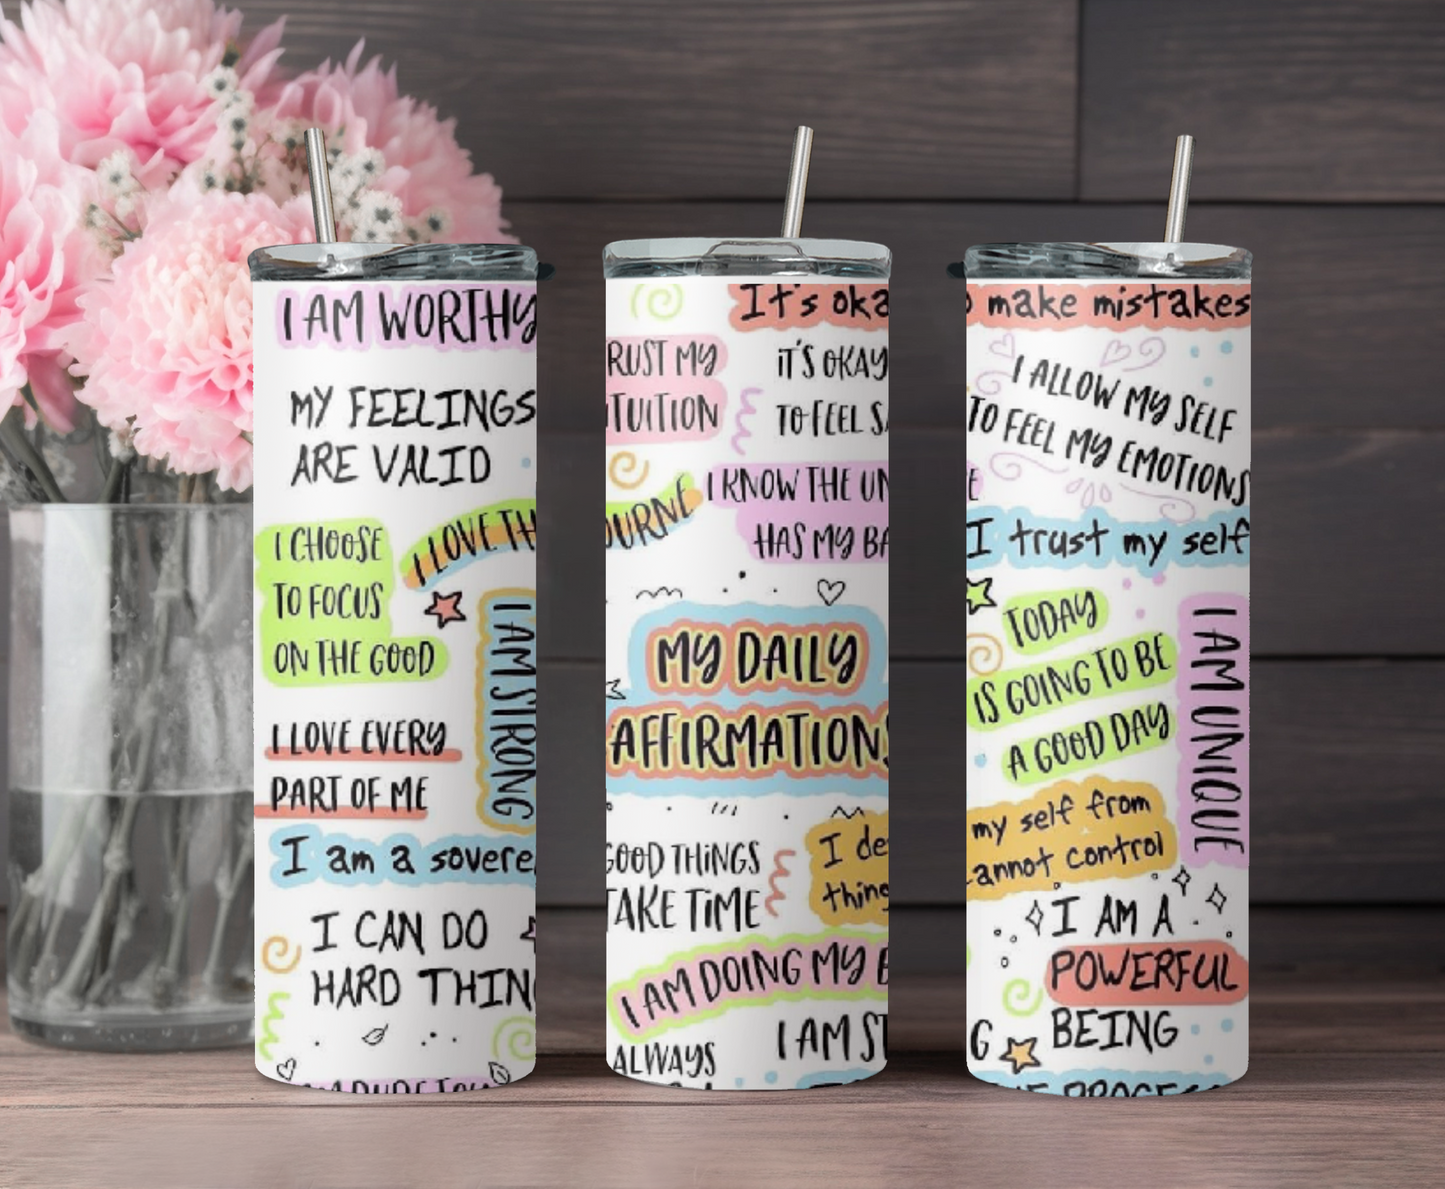 I AM WORTHY
MY FEELINGS
ARE VALID
I CHOOSE
TO FOCUS
ON THE GOOD
I LOVE TH
I AM STRONG
I LOVE EVERY
PART OF ME
I am a sovere
I CAN DO
HARD THIN
It's oka
RUST MY
TUITION
IT'S OKAY
TO FEEL S
OURNE
I KNOW THE UN
HAS MY BA
MY DAILY
AFFIRMATIONS
GOOD THINGS
TAKE TIME
I de
thing
I AM DOING MY B
ALWAYS
I AM ST
o make mistakes
I ALLOW MY SELF
TO FEEL MY EMOTIONS
E
I trust my self
TODAY
IS GOING TO BE
A GOOD DAY
I AM UNIQUE
my self from
cannot control
I AM A
POWERFUL
BEING
G